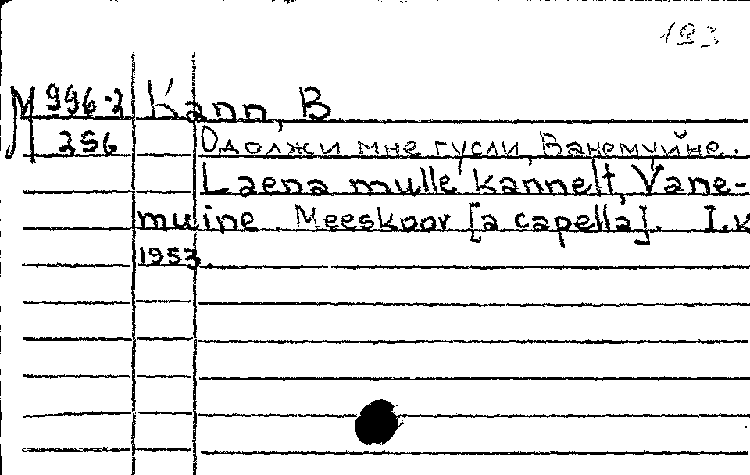 123
M 996-2 Kann, B
256 Одолжи мне гусли, Ванемуйне.
Laena mulle kannelt, Vane-
muine. Meeskoor [a capella]. I.k
1953.